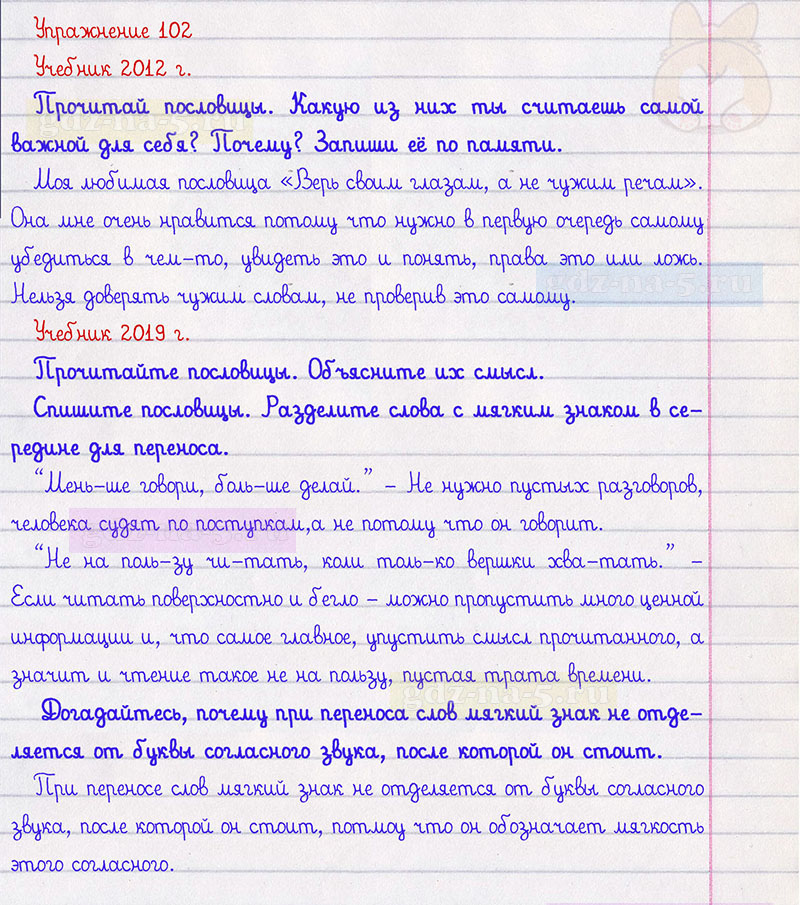 Упражнение 102
Учебник 2012 г.
Прочитай пословицы. Какую из них ты считаешь самой
важной для себя? Почему? Запиши её по памяти.
Моя любимая пословица «Верь своим глазам, а не чужим речам».
Она мне очень нравится потому что нужно в первую очередь самому
убедиться в чем-то, увидеть это и понять, права это или ложь.
Нельзя доверять чужим словам, не проверив это самому.
Учебник 2019 г.
Прочитайте пословицы. Объясните их смысл.
Спишите пословицы. Разделите слова с мягким знаком в се-
редине для переноса.
“Мень-ше говори, боль-ше делай.” - Не нужно пустых разговоров,
человека судят по поступкам,а не потому что он говорит.
“Не на поль-зу чи-тать, коли толь-ко вершки хва-тать.” -
Если читать поверхностно и бегло - можно пропустить много ценной
информации и, что самое главное, упустить смысл прочитанного, а
значит и чтение такое не на пользу, пустая трата времени.
Догадайтесь, почему при переноса слов мягкий знак не отде-
ляется от буквы согласного звука, после которой он стоит.
При переносе слов мягкий знак не отделяется от буквы согласного
звука, после которой он стоит, потмоу что он обозначает мягкость
этого согласного.
gdz-na-5.ru
gdz-na-5.ru
gdz-na-5.ru
gdz-na-5.ru